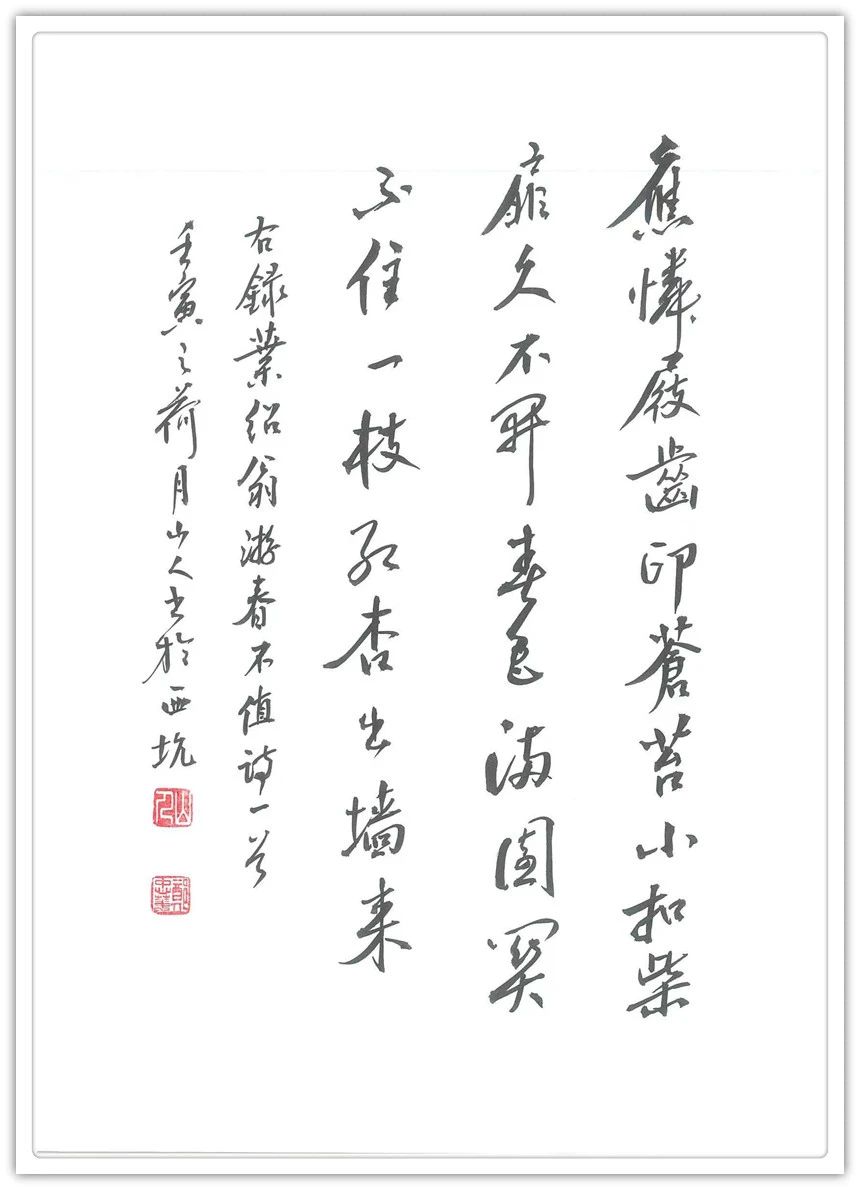 應憐屐齒印蒼苔小扣柴
扉久不開春色滿園關
不住一枝紅杏出墙来
右録葉紹翁游春不值詩一首
壬寅之荷月山人書於西坑
山人